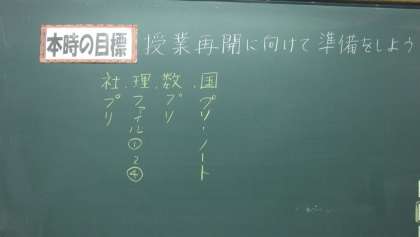 本時の目標 授業再開に向けて準備をしよう
国プリ・ノート
数プリ
理ファイル①2④
社プリ